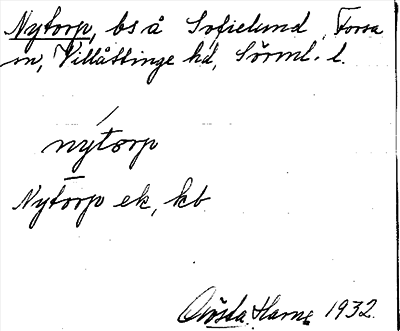 Nytorp, bs å Sofielund, Forsa
sn, Villåttinge hd, Sörml. l.
nýtorp
Nytorp ek, kb
Gösta Harne 1932.